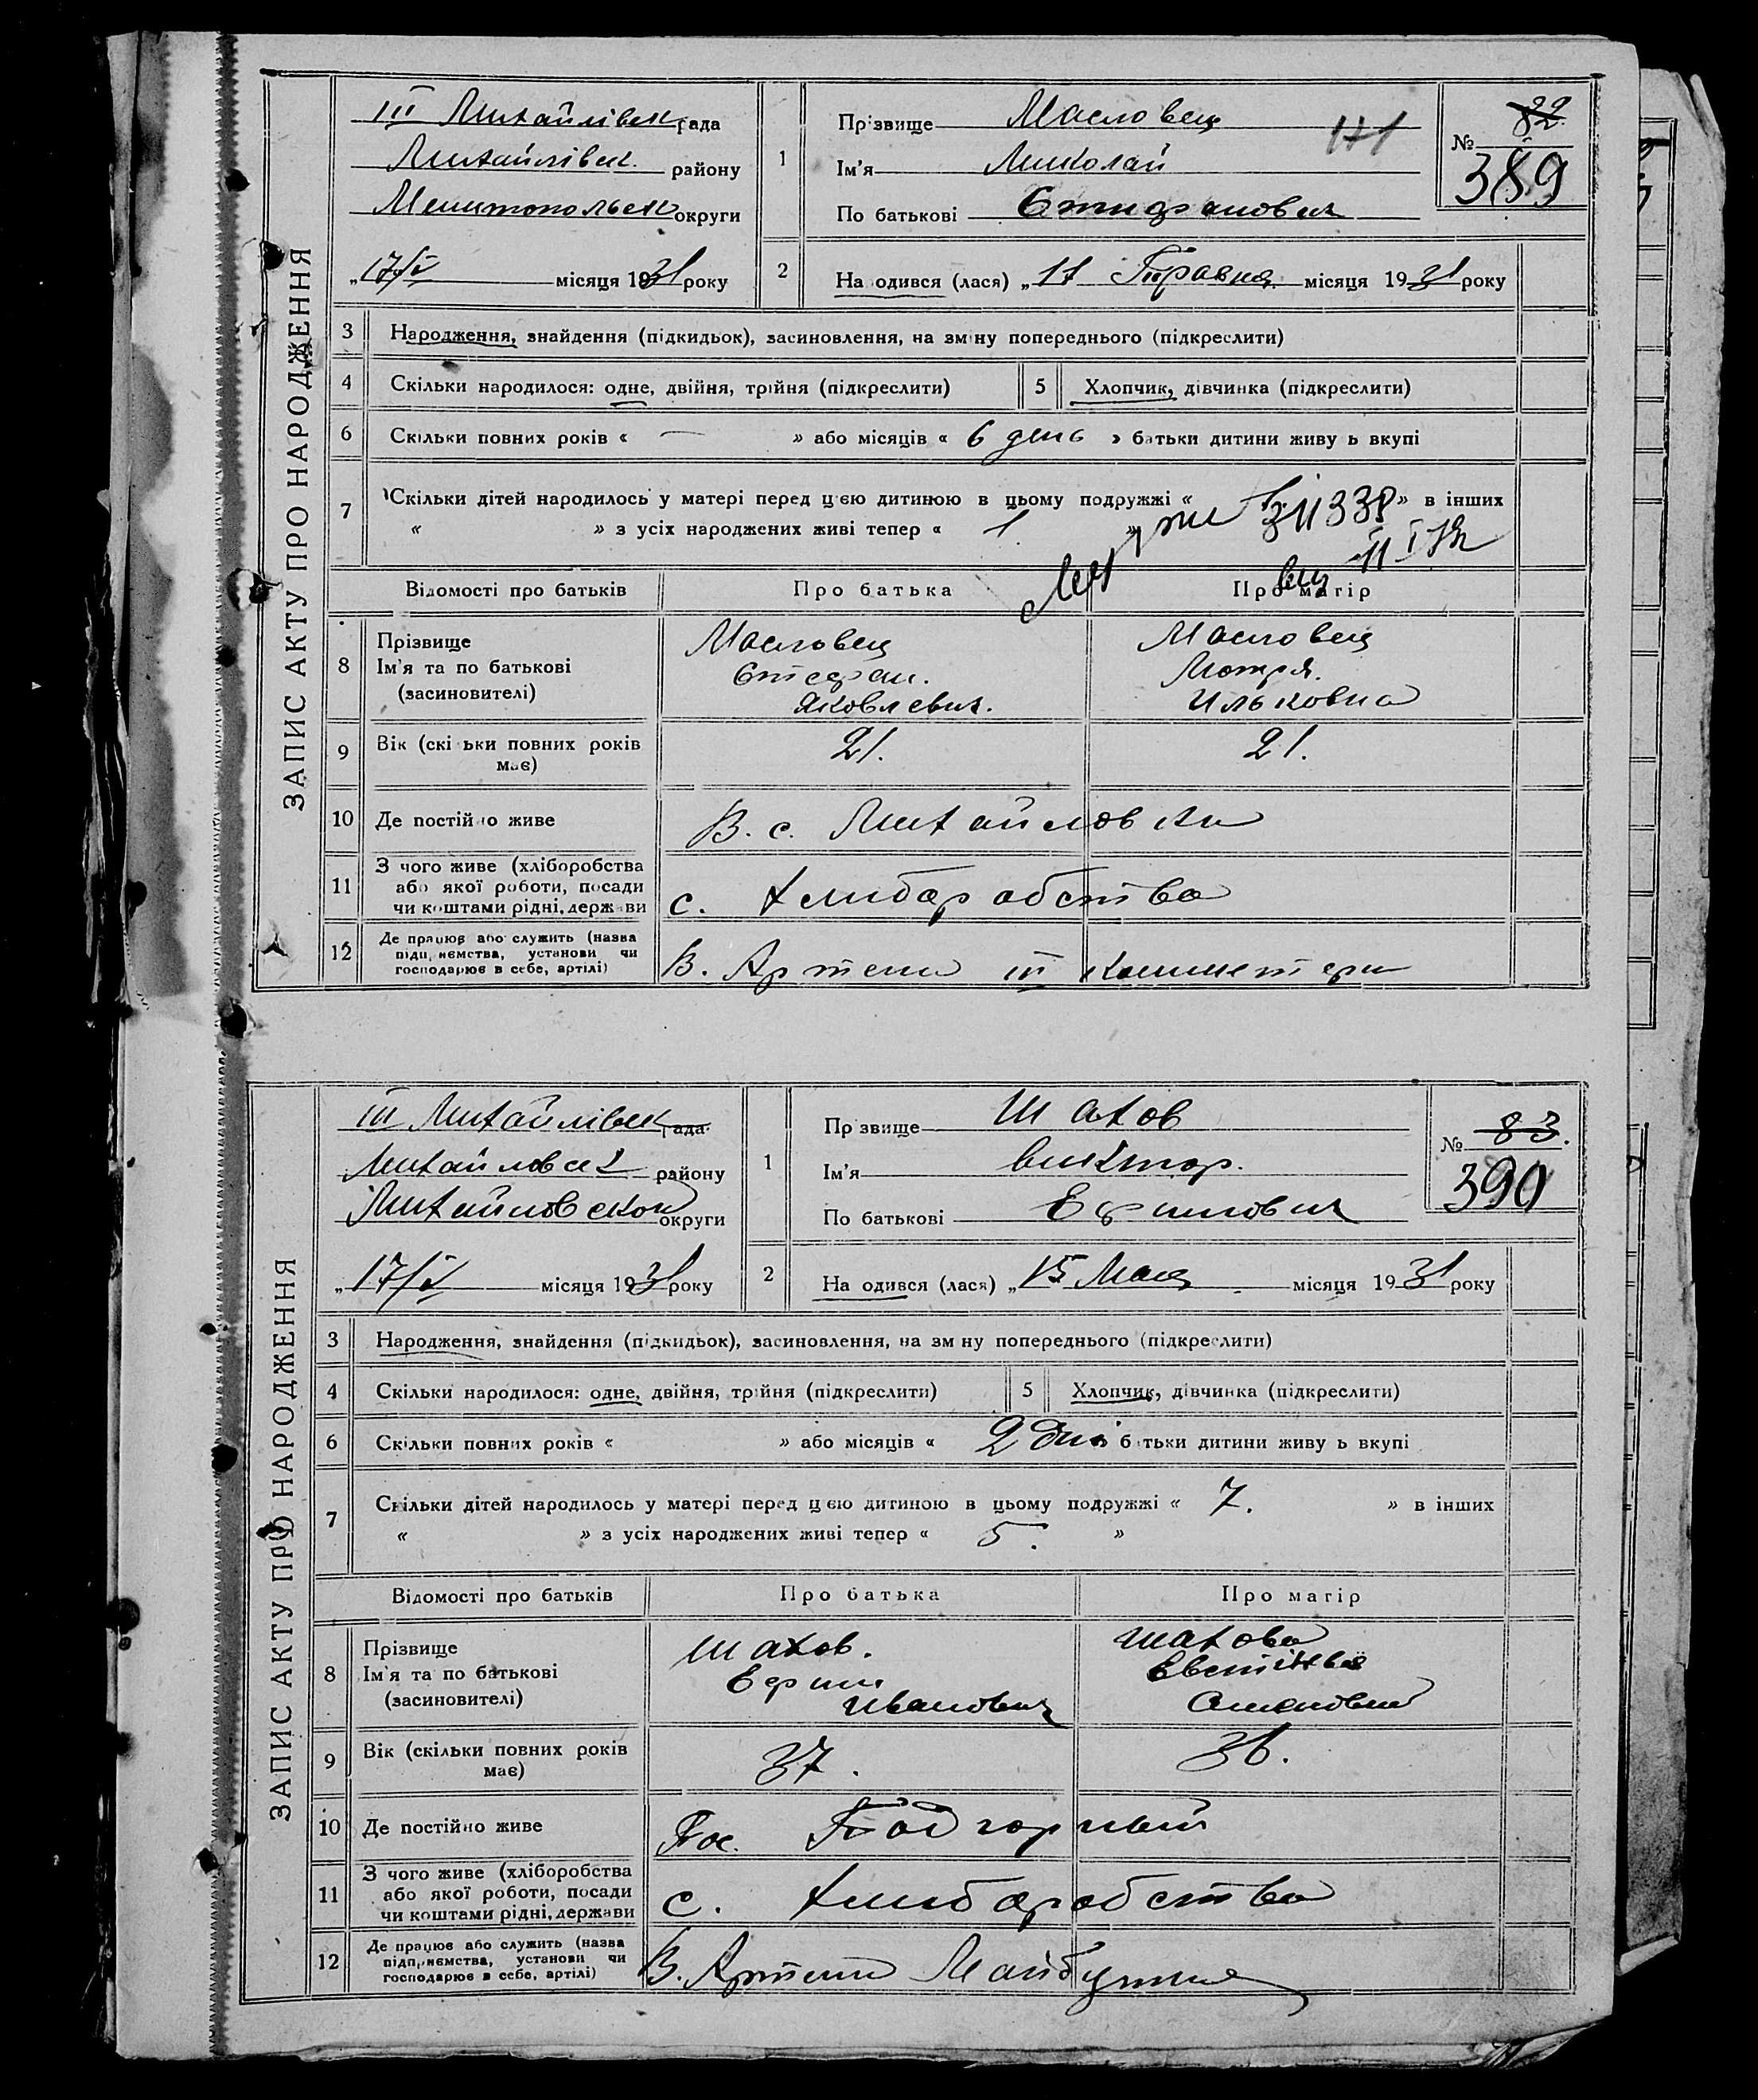 ЗАПИС АКТУ ПРО НАРОДЖЕННЯ
III Михайлівськ рада
Михайлівск. району
Мелитопольск округи
„17/V місяця 1931 року
1 Прізвище Масловец
Ім'я Миколай
По батькові Стифанович
№ 82
389
2 На одився (лася) „11 Травня місяця 1931 року
3 Народження, знайдення (підкидьок), засиновлення, на зміну попереднього (підкреслити)
4 Скільки народилося: одне, двійня, трійня (підкреслити) 5 Хлопчик, дівчинка (підкреслити)
6 Скільки повних років « — » або місяців « 6 день » батьки дитини живу ь вкупі
7 Скільки дітей народилось у матері перед цією дитиною в цьому подружжі « » в інших
« » з усіх народжених живі тепер « 1. »
Відомості про батьків Про батька Про матір
8 Прізвище
Ім'я та по батькові
(засиновителі)
Масловец
Стефан.
Яковлевич.
Масловец
Мотря.
Ильковна
9 Вік (скі ьки повних років має) 21. 21.
10 Де постійно живе В. с. Михайловки
11 З чого живе (хліборобства
або якої роботи, посади
чи коштами рідні, держави
с. хлиборобства
12 Де працює або служить (назва
підприємства, установи чи
господарює в себе, артілі)
В. Артели III
ЗАПИС АКТУ ПРО НАРОДЖЕННЯ
III Михайлівск рада
Михайловск району
Михайловской округи
„17/V місяця 1931 року
1 Пр звище Шахов
Ім'я Виктор.
По батькові Ефимович
№ 83.
390
2 На одився (лася) „15 Мая місяця 1931 року
3 Народження, знайдення (підкидьок), засиновлення, на зм ну попереднього (підкреслити)
4 Скільки народилося: одне, двійня, трійня (підкреслити) 5 Хлопчик, дівчинка (підкреслити)
6 Скільки повних років « » або місяців « 2 дні б тьки дитини живу ь вкупі
7 Скільки дітей народилось у матері перед цією дитиною в цьому подружжі « 7. » в інших
« » з усіх народжених живі тепер « 5. »
Відомості про батьків Про батька Про матір
8 Прізвище
Ім'я та по батькові
(засиновителі)
Шахов.
Ефим
Иванович
Шахова
9 Вік (скільки повних років має) 37. 36.
10 Де постійно живе Пос. Подгорный
11 З чого живе (хліборобства
або якої роботи, посади
чи коштами рідні, держави
с. хлиборобства
12 Де працює або служить (назва
підприємства, установи чи
господарює в себе, артілі)
В. Артели Майбутнє